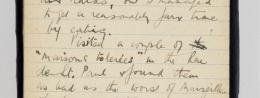 to get a reasonably fair time
by eating.
Visited a couple of
"maisons tolerées", in the Rue
de St. Paul & found them
as bad as the worst of Marseilles